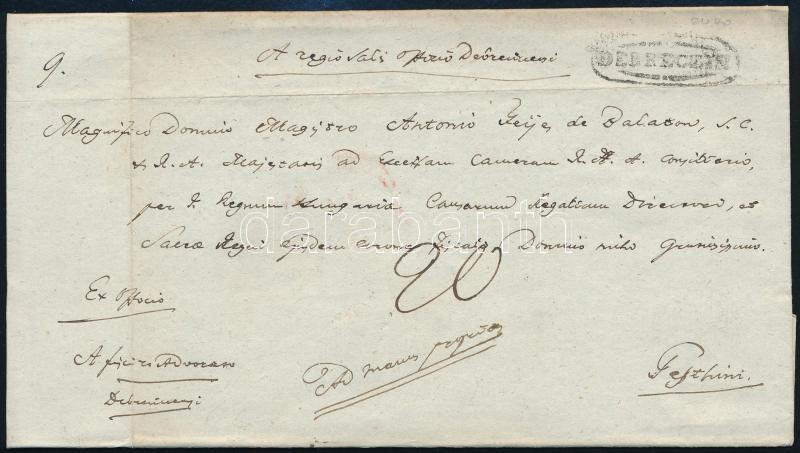 9.
A regio Salis Officio Debrecinensi
DEBRECZEN
Magnifico Domino Magistro Antonio Fejes de Balaton, S. C.
et R. A. Majestatis ad Excelsam Cameram R. H. A. Consiliario,
per I. Regnum Hungariae Causarum Regalium Directori, et
Sacrae Regni ejusdem Coronae Fiscali, Domino mihi gratiosissimo.
darabanth
20
Ex Officio
A fisci Advocato
Debrecinensi
Ad manus proprias
Pesthini.